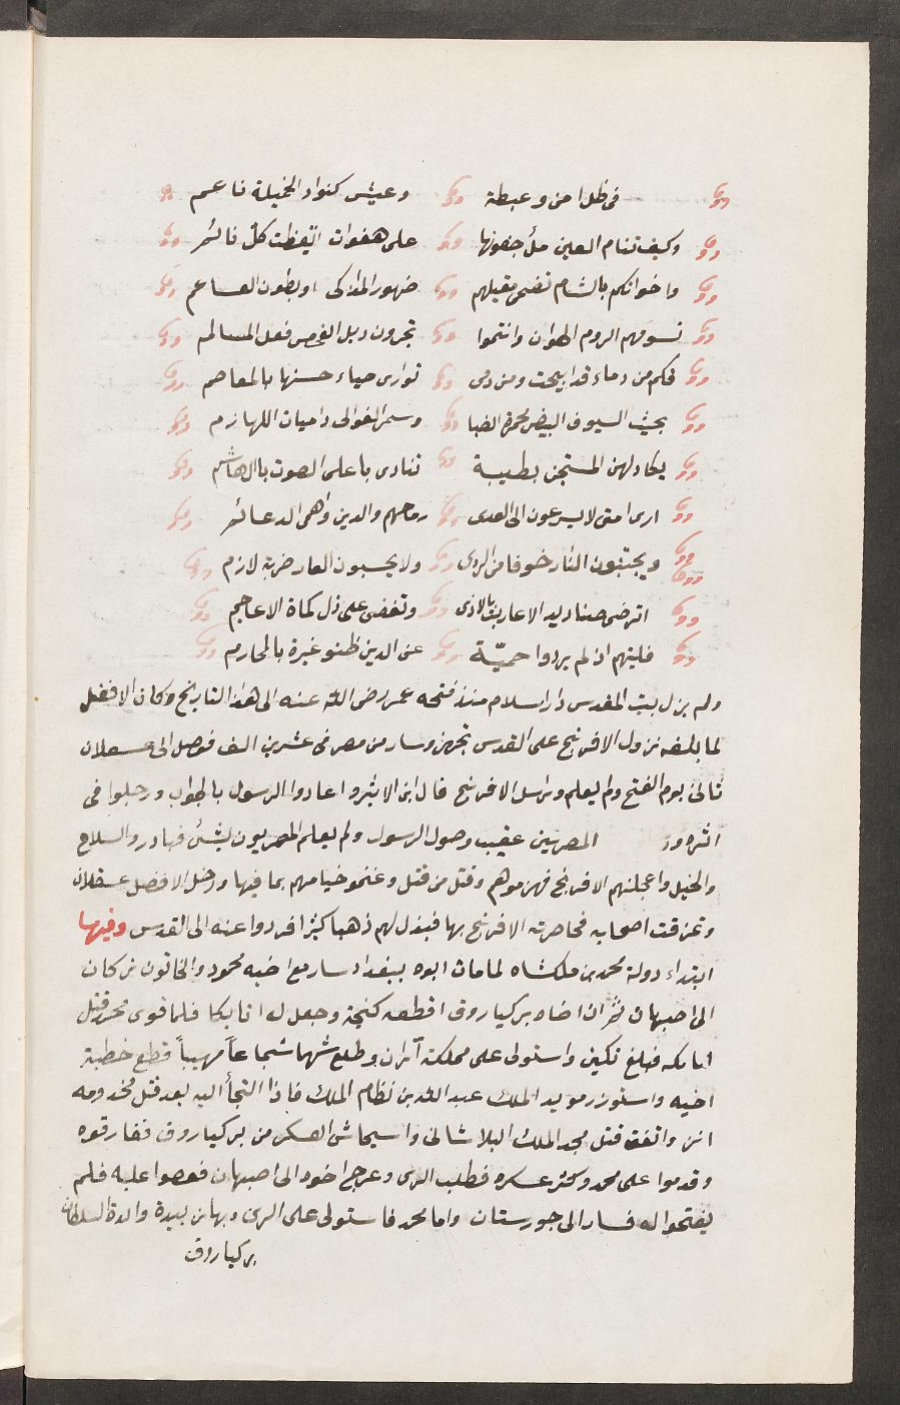 فى ظل امن وغبطة وعيش كنوار الخميلة ناعم
وكيف تنام العين ملأ جفونها على هفوات ايقظت كل نائم
واخوانكم بالشام تضحى مقيلهم ظهور المذاكى او بطون القشاعم
تسومهم الروم الهوان وانتموا تجرون ذيل الخفض فعل المسالم
فكم من دماء قد ابيحت ومن دمى توارى حياء حسنها بالمعاصم
بحيث السيوف البيض محمرة الضبا وسمر العوالى داميات اللهازم
يكاد لهن المستجن بطيبة ينادى باعلى الصوت يا ال هاشم
ارى امتى لا يسرعون الى العدى رماحهم والدين واهى الدعائم
ويجتنبون النار خوفا من الردى ولا يحسبون العار ضربة لازم
اترضى صناديد الاعاريب بالاذى وتغضى على ذل كماة الاعاجم
فليتهم اذ لم يردوا حميّة عن الدين ظنو غيرة بالمحارم
ولم يزل بيت المقدس دار اسلام منذ فتحه عمر رضى الله عنه الى هذا التاريخ وكان الافضل
لما بلغه نزول الافرنج على القدس تجهز وسار من مصر فى عشرين الف فوصل الى عسقلان
ثانى يوم الفتح ولم يعلم وراسل الافرنج قال ابن الاثير واعادوا الرسول بالجواب ورحلوا فى
اثره المصريين عقيب وصول الرسول ولم يعلم المصريون بشئ فبادروا السلاح
والخيل واعجلتهم الافرنج فهزموهم وقتل من قتل وغنمو خيامهم بما فيها ودخل الافضل عسقلان
وتمزقت اصحابه فحاصرته الافرنج بها فبذل لهم ذهبا كثيرا فردوا عنه الى القدس وفيها
ابتداء دولة محمد بن ملكشاه لما مات ابوه ببغداد سار مع اخيه محمود والخاتون تركان
الى اصبهان ثم ان اخاه بركياروق اقطعه كنجة وجعل له اتابكا فلما قوى محمد قتل
اتابكه قتلغ تكين واستولى على مملكة آران وطلع شهما شجاعاً مهيباً قطع خطبة
اخيه واستوزر مويد الملك عبد الله بن نظام الملك فاذا التجأ اليه بعد قتل مخدومه
انز واتفق قتل مجد الملك البلاشانى واستيحاش العسكر من بركياروق ففارقوه
وقدموا على محمد وكثر عسكره فطلب الرى وعرج اخوه الى اصبهان فعصوا عليه فلم
يفتحوا له فسار الى خورستان واما محمد فاستولى على الرى وبها زبيدة والدة السلطان
بركياروق